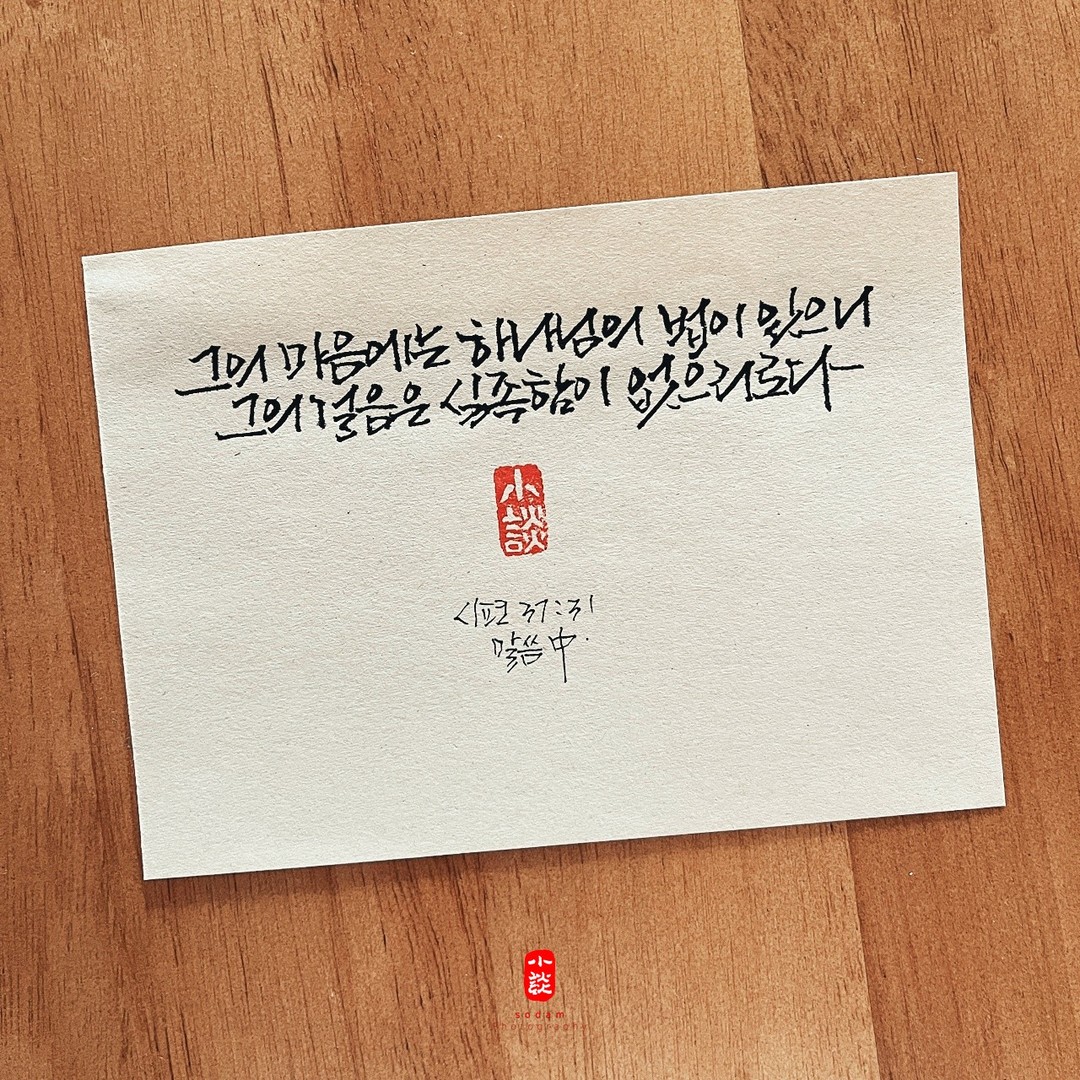 그의 마음에는 하나님의 법이 있으니
그의 걸음은 실족함이 없으리로다
小談
시편 37:31
말씀 中.
小談
sodam
Photography